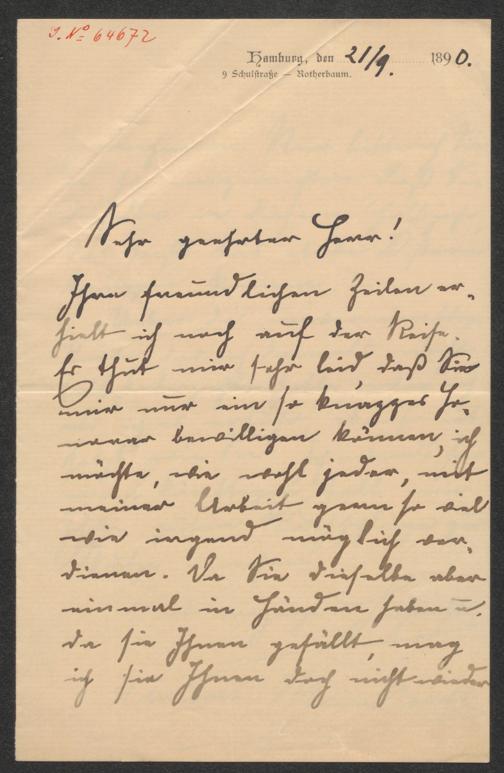 J. Nº 64672
Hamburg, den 21/9. 1890.
9 Schulstraße — Rotherbaum.
Sehr geehrter Herr!
Ihre freundlichen Zeilen er-
hielt ich noch auf der Reise.
Es thut mir sehr leid daß Sie
mir nur ein so knappes Ho-
norar bewilligen können, ich
möchte, wie wohl jeder, mit
meiner Arbeit gern so viel
wie irgend möglich ver-
dienen. Da Sie dieselbe aber
einmal in Händen haben u.
da sie Ihnen gefällt, mag
ich sie Ihnen doch nicht wieder